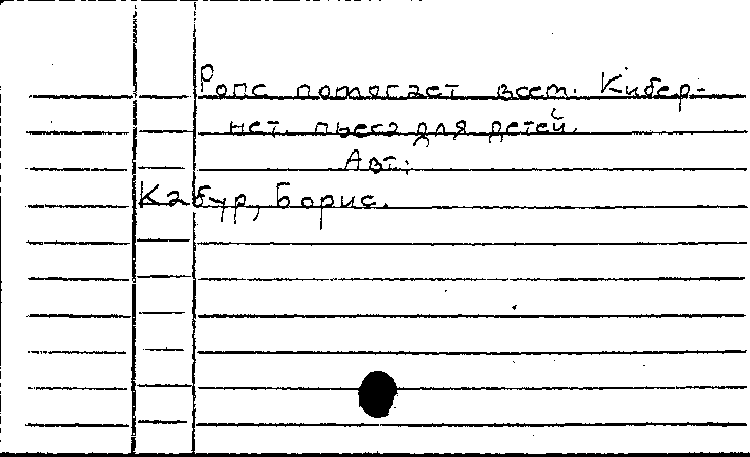 Ропс помогает всем. Кибер-
нет. пьеса для детей.
Авт.:
Кабур, Борис.